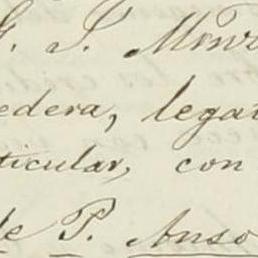 G. J. Monr
edera, legat
ticular, con
de P. Anso